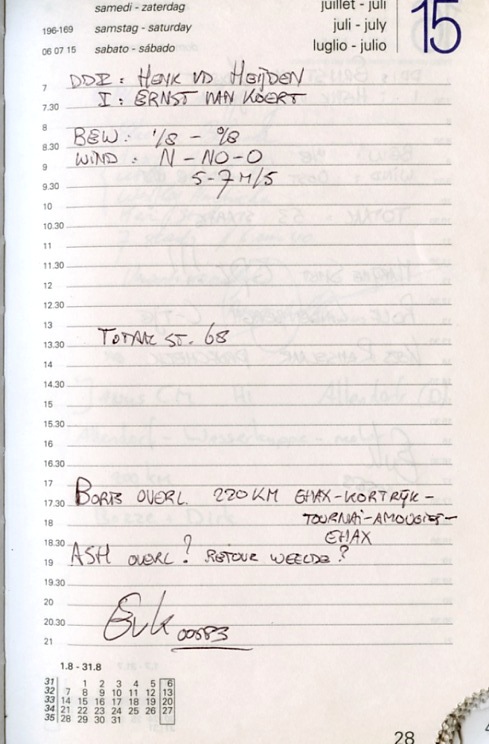 samedi - zaterdag
juillet - juli
196-169 samstag - saturday
juli - july
06 07 15 sabato - sábado
luglio - julio
15
7 DDI: HENK VD HEIJDEN
7.30 I: ERNST VAN KOERT
8 BEW: 1/8 - 9/8
8.30 WIND: N-NO-O
9 5-7 M/S
9.30
10
10.30
11
11.30
12
12.30
13 TOTAAL ST. 68
13.30
14
14.30
15
15.30
16
16.30
17 BORIS OVERL. 220 KM EHAX-KORTRIJK-
17.30 TOURNAI-AMOUGIES-
18 EHAX
18.30 ASH OVERL? RETOUR WEELDE?
19
19.30
20
20.30 EvK 00583
21
1.8 - 31.8
31 1 2 3 4 5 6
32 7 8 9 10 11 12 13
33 14 15 16 17 18 19 20
34 21 22 23 24 25 26 27
35 28 29 30 31
28